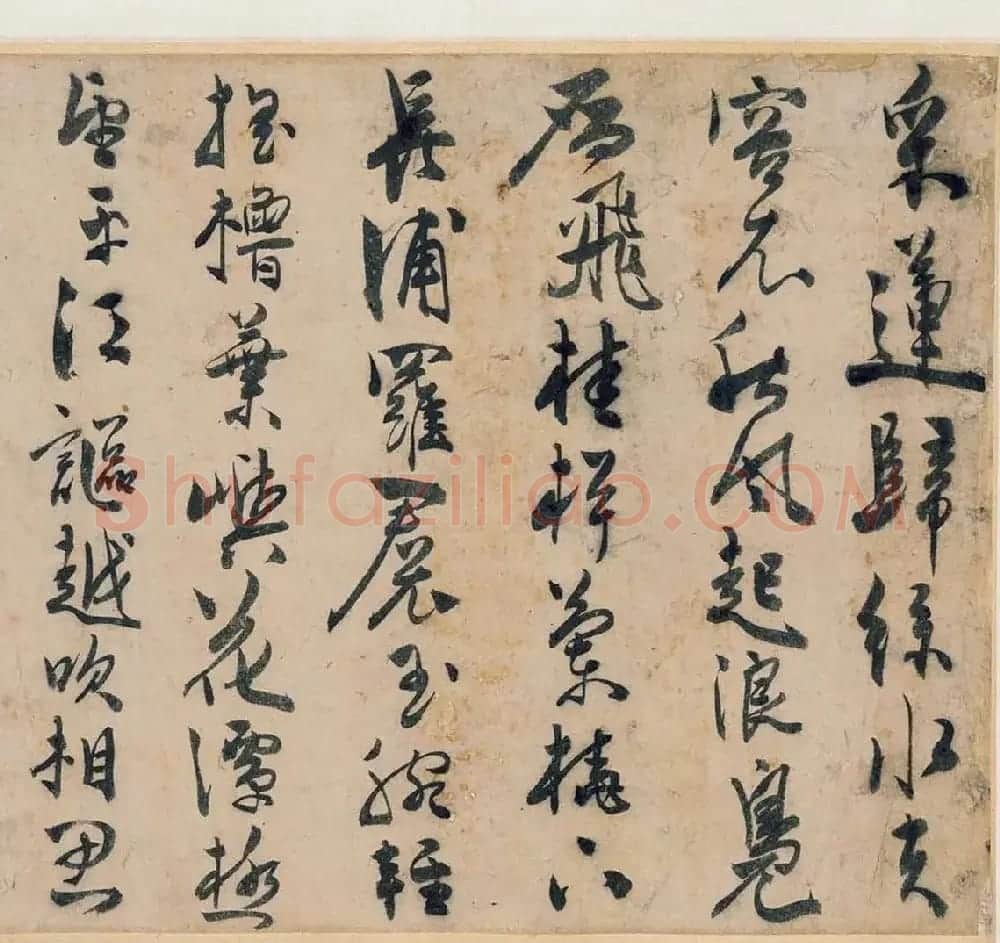 采蓮歸綠水芙
蓉衣秋風起浪鳧
鴈飛桂棹蘭橈下
長浦羅裠玉腕輕
搖櫓葉嶼花潭極
望平江謳越吹相思
Shufaziliao.COM